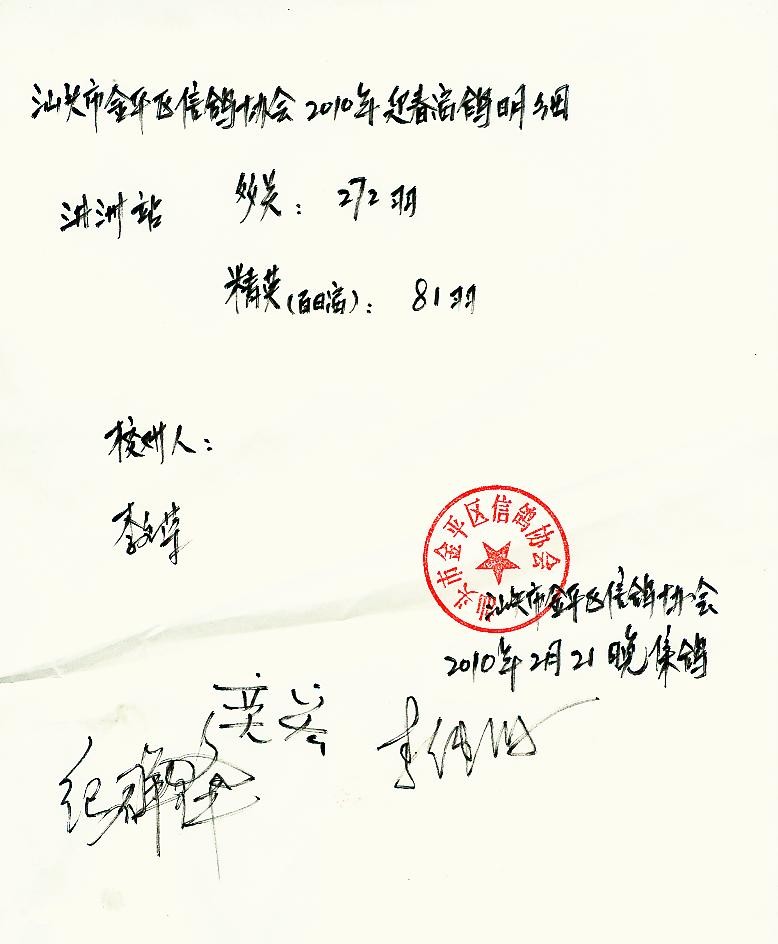 汕头市金平区信鸽协会2010年迎春赛鸽明细
洪洲站 多关：272羽
精英(百日赛)：81羽
校对人：
汕头市金平区信鸽协会
汕头市金平区信鸽协会
2010年2月21晚集鸽